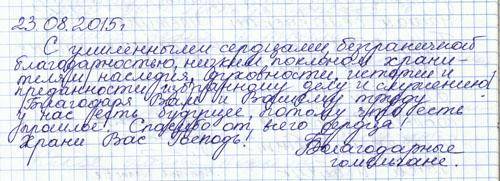 23.08.2015г
С умиленными сердцами, безграничной
благодарностью, низким поклоном храни-
телям наследия, духовности, истории и
преданности избранному делу и служению!
Благодаря Вам и Вашему труду
у нас есть будущее, потому что есть
прошлое! Спасибо от всего сердца!
Храни Вас Господь! Благодарные
гомельчане.